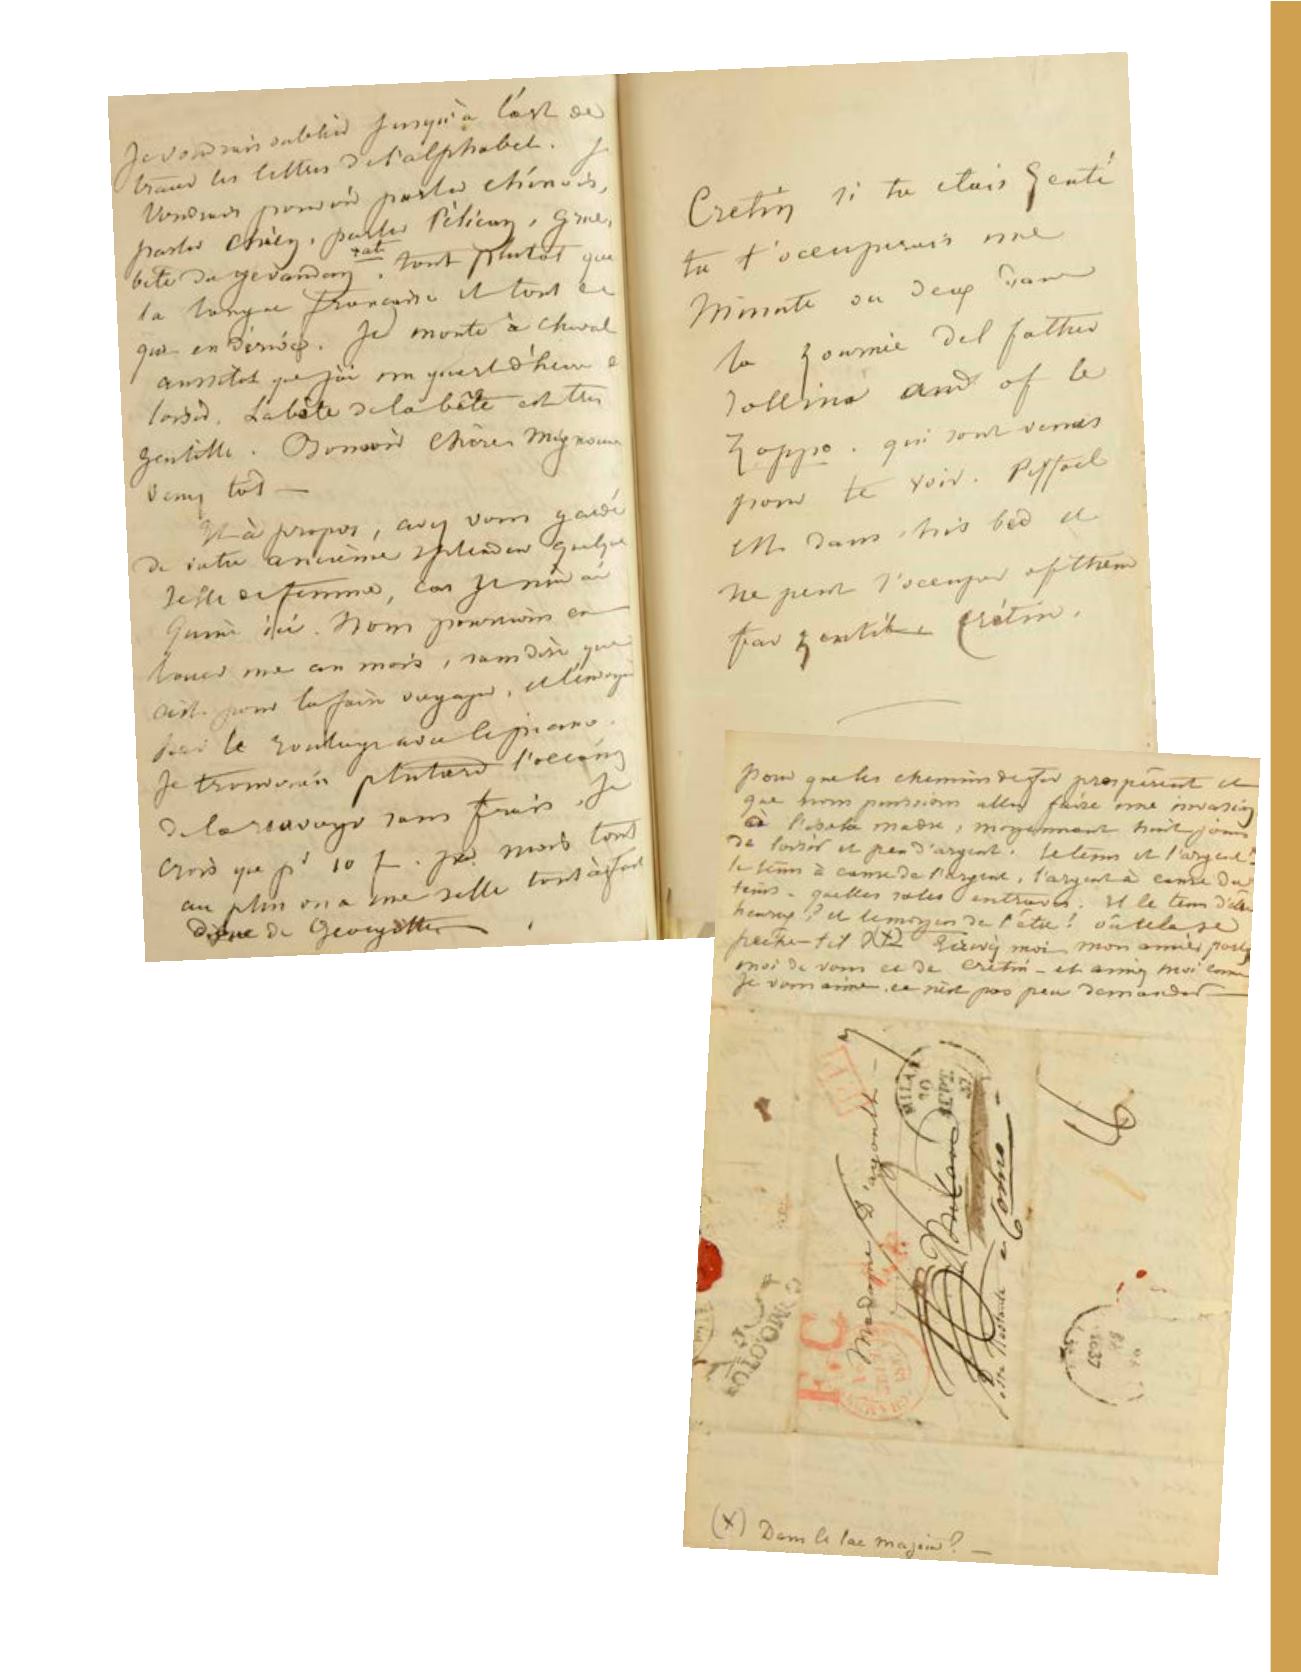 Je voudrais oublier jusqu'à l'art de
tracer les lettres de l'alphabet. Je
voudrais pouvoir parler chinois,
parler chien, parler Pélican, grue,
rat
bête du gevaudan, tout plutôt que
la langue française et tout ce
qui en dérive. Je monte à cheval
aussitot que j'ai un quart d'heure de
loisir. La bête de la bête est très
gentille. Bonsoir Chères Mignons
venez tot —
Et à propos, avez vous gardé
de votre ancienne splendeur quelque
selle de femme, car je n'en ai
qu'une ici. Nous pourrions en
louer une au mois, sans dire que
c'est pour la faire voyager, et l'envoyer
par le roulage avec le piano.
Je trouverais plutard l'occasion
de la renvoyer sans frais. Je
crois que pr 10 f. par mois tout
au plus on a une selle tout à fait
digne de Georgette
Cretin si tu etais zenti
tu t'occuperais une
Minute ou deux dans
la zournée del father
rollino and of le
Zoppo. qui sont venus
pour te voir. Piffoel
est dans his bed et
ne peut s'occuper of them
zentil Crétin.
pour que les chemins de fer prospèrent et
que nous puissions aller faire une invasion
à l'isola madre, moyennant huit jours
de loisir et peu d'argent. Le tems et l'argent!
le tems à cause de l'argent, l'argent à cause du
tems - quelles sales entraves. Et le tems d'être
heureux? et le moyen de l'être! où cela se
peche-t-il (X)? Ecrivez moi mon amie, parlez
moi de vous et de Crétin - et aimez moi comme
je vous aime. ce n'est pas peu demander —
Madame D'agoult —
Milano
Poste Restante à Como
MILANO
10
SEPT.
37
F.C
16
1837
(X) Dans le lac majeur? —